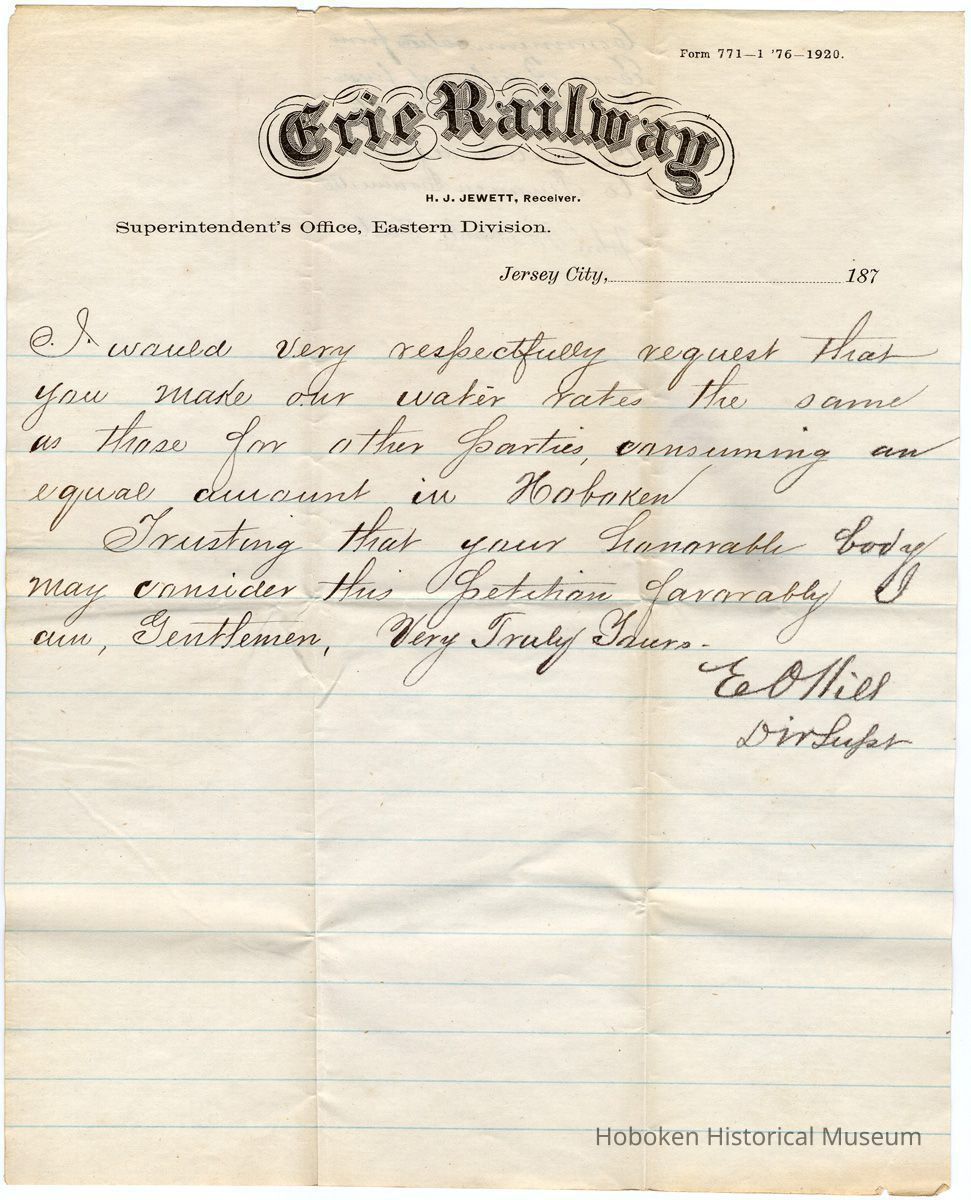 Form 771—1 '76—1920.
Erie Railway
H. J. JEWETT, Receiver.
Superintendent's Office, Eastern Division.
Jersey City, 187
I would very respectfully request that
you make our water rates the same
as those for other parties, consuming an
equal amount in Hoboken
Trusting that your honorable body
may consider this petition favorably I
am, Gentlemen, Very Truly Yours.
E O Hill
Div Supt
Hoboken Historical Museum